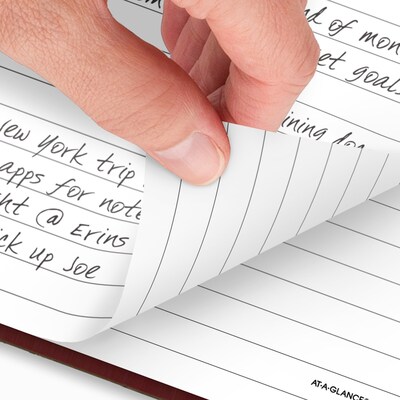 d of mon
et goals
ining for
ew York trip
apps for note
ht @ Erins
ck up Joe
AT-A-GLANCE®